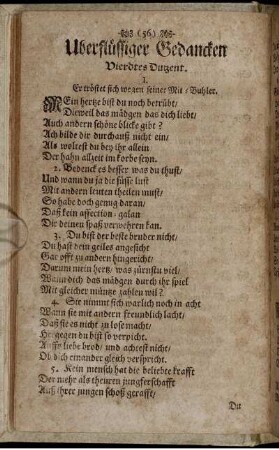 (56)
Uberflüssiger Gedancken
Vierdtes Dutzent.
1.
Er tröstet sich wegen seiner Mit-Buhler.
MEin hertze bist du noch betrübt/
Dieweil das mädgen das dich liebt/
Auch andern schöne blicke gibt?
Ach bilde dir durchauß nicht ein/
Als woltest du bey ihr allein
Der hahn allzeit im korbe seyn.
2. Bedenck es besser was du thust/
Und wann du ja die süsse lust
Mit andern leuten theilen must/
So habe doch genug daran/
Daß kein affection-galan
Dir deinen spaß verwehren kan.
3. Du bist der beste bruder nicht/
Du hast dein geiles angesicht
Gar offt zu andern hingericht/
Darum mein hertz/ was zürnstu viel/
Wann dich das mädgen durch ihr spiel
Mit gleicher müntze zahlen wil?
4. Sie nimmt sich warlich noch in acht
Wann sie mit andern freundlich lacht/
Daß sie es nicht zu lose macht/
Hergegen du bist so verpicht.
Auff liebe brod/ und achtest nicht/
Ob dich einander gleich verspricht.
5. Kein mensch hat die beliebte krafft
Der mehr als theuren jungferschafft
Auß ihrer jungen schoß gerafft/